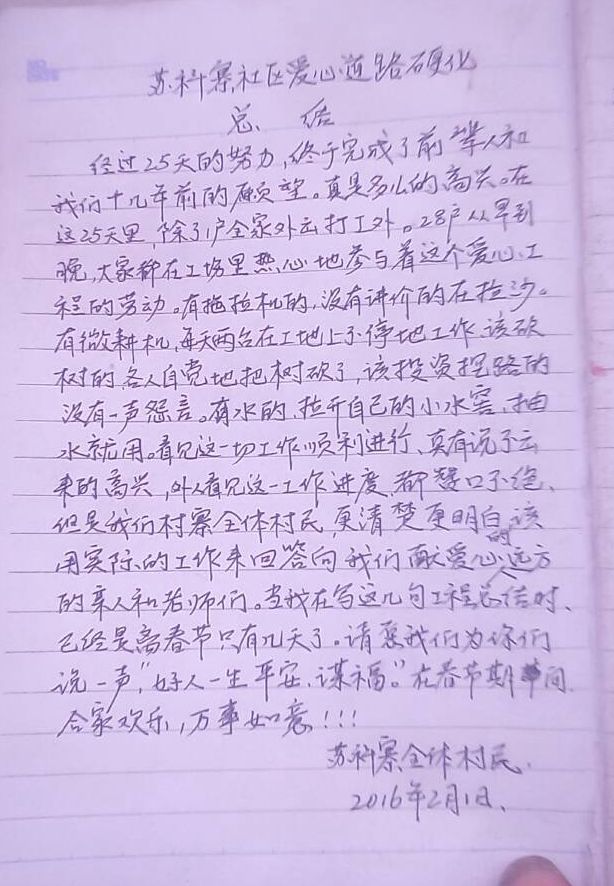 苏科寨社区爱心道路硬化
总结
经过25天的努力,终于完成了前辈人和
我们十几年前的愿望。真是多么的高兴。在
这25天里,除了1户全家外出打工外。28户从早到
晚,大家都在工场里热心地参与着这个爱心工
程的劳动。有拖拉机的,没有讲价的在拉沙。
有微耕机,每天两台在工地上不停地工作,该砍
树的各人自觉地把树砍了,该投资挖路的
没有一声怨言。有水的,拉开自己的小水窖,抽
水就用。看见这一切工作顺利进行、真有说不出
来的高兴,外人看见这一工作进度,都赞口不绝、
但是我们村寨全体村民,更清楚更明白,该
用实际的工作来回答向我们献爱心的远方
的亲人和老师们。当我在写这几句工程总结时、
已经是离春节只有几天了。请容我们为你们
说一声,“好人一生平安、谋福。”在春节期间
合家欢乐,万事如意!!!
苏科寨全体村民.
2016年2月1日、